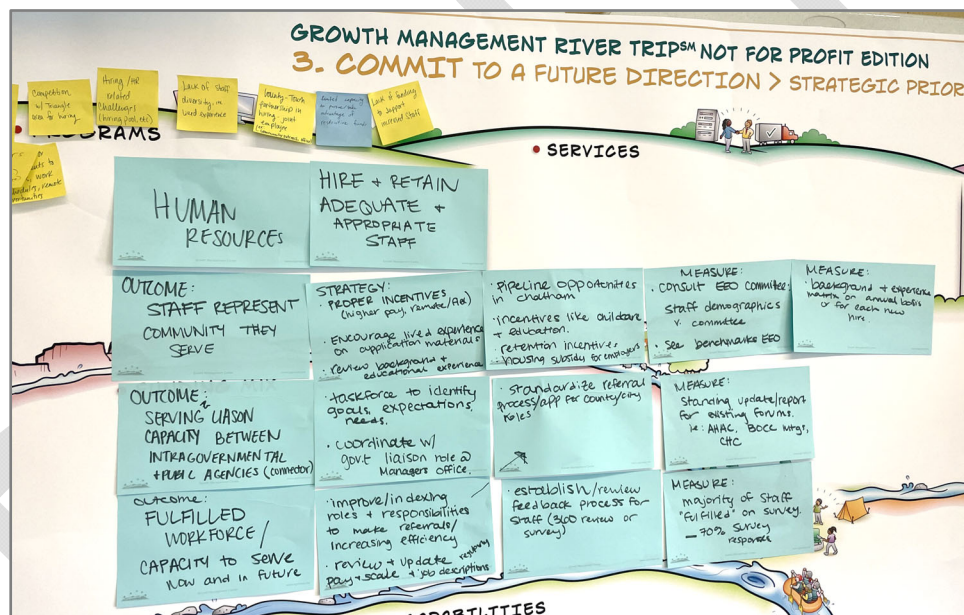 GROWTH MANAGEMENT RIVER TRIP℠ NOT FOR PROFIT EDITION
3. COMMIT TO A FUTURE DIRECTION > STRATEGIC PRIOR
Competition
w/ Triangle
area for hiring
Hiring/HR
related
Challenges
(hiring pool, etc)
Lack of Staff
diversity in
lived experience
County-Town
partnership in
hiring joint
employee
Limited capacity
advantage of
Lack of funding
to support
increased staff
work
remote
• SERVICES
HUMAN
RESOURCES
HIRE + RETAIN
ADEQUATE +
APPROPRIATE
STAFF
OUTCOME:
STAFF REPRESENT
COMMUNITY THEY
SERVE
STRATEGY:
· PROPER INCENTIVES
(higher pay, remote/ARE)
· ENCOURAGE lived experience
on application materials
· review background +
educational experience
· Pipeline opportunities
in chatham
· incentives like childcare
+ education.
· retention incentives
· housing subsidy for employees
MEASURE:
· CONSULT EEO COMMITTEE:
staff demographics
v. committee
· See benchmarks EEO
MEASURE:
· background + experience
matrix on annual basis
or for each new
hire.
OUTCOME:
SERVING LIASON
CAPACITY BETWEEN
INTRAGOVERNMENTAL
+ PUBLIC AGENCIES (connector)
· taskforce to identify
goals, expectations,
needs.
· coordinate w/
gov't liaison role @
Managers office.
· standardize referral
process/app for county/city
roles
MEASURE:
Standing update/report
for existing forums.
ie: AHAC, BOCC Mtgs,
CHC
outcome:
FULFILLED
WORKFORCE/
CAPACITY to SERVE
now and in future
· improve/indexing
roles + responsibilities
to make referrals/
increasing efficiency
· review + update existing
pay + scale + job descriptions
· establish/review
feedback process for
staff (360 review or
survey)
MEASURE:
majority of staff
"fulfilled" on survey.
— 70% survey
response